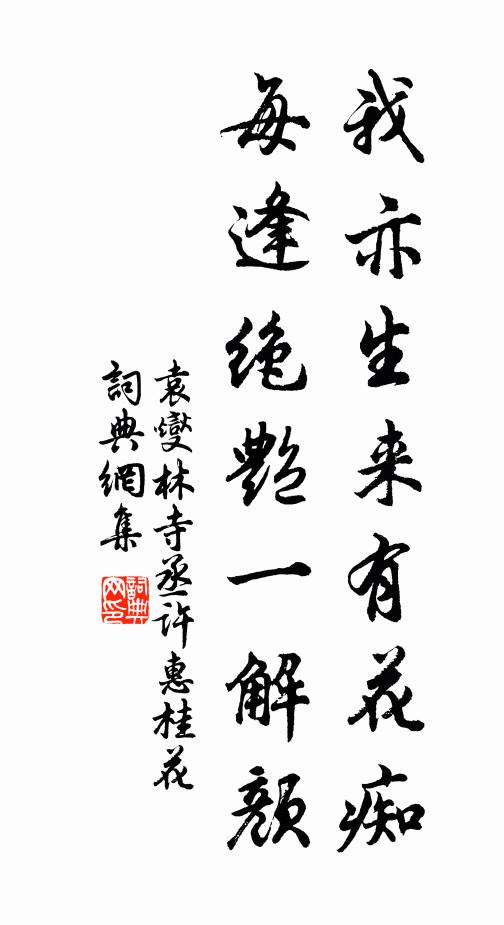 我亦生来有花痴
每逢绝艷一解颜
袁燮林寺丞许惠桂花
詞典網集
詞典网印